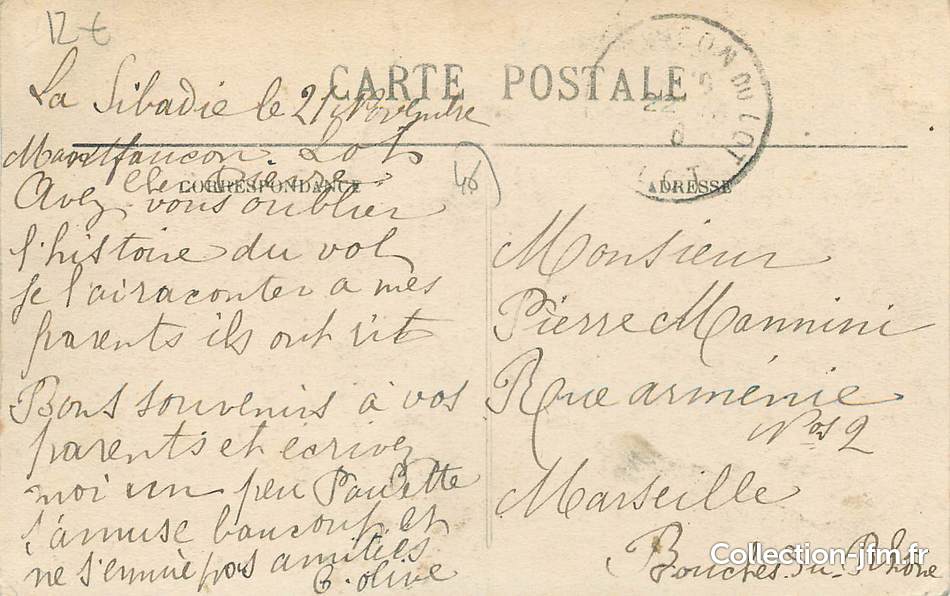 12 €
CARTE POSTALE
La Sibadie le 21 Novembre
Montfaucon. Lot
CORRESPONDANCE
Cher Pierre
Avez vous oublier
l'histoire du vol
je l'ai raconter a mes
parents ils ont rit
Bons souvenirs à vos
parents et écrivez
moi un peu Paulette
s'amuse baucoup et
ne s'ennuie pas amitiés
G. Olive
46
ADRESSE
Monsieur
Pierre Mannini
Rue arménie
Nos 2
Marseille
Bouches. Du. Rhône
CON DU LOT
22
LOT
Collection-jfm.fr